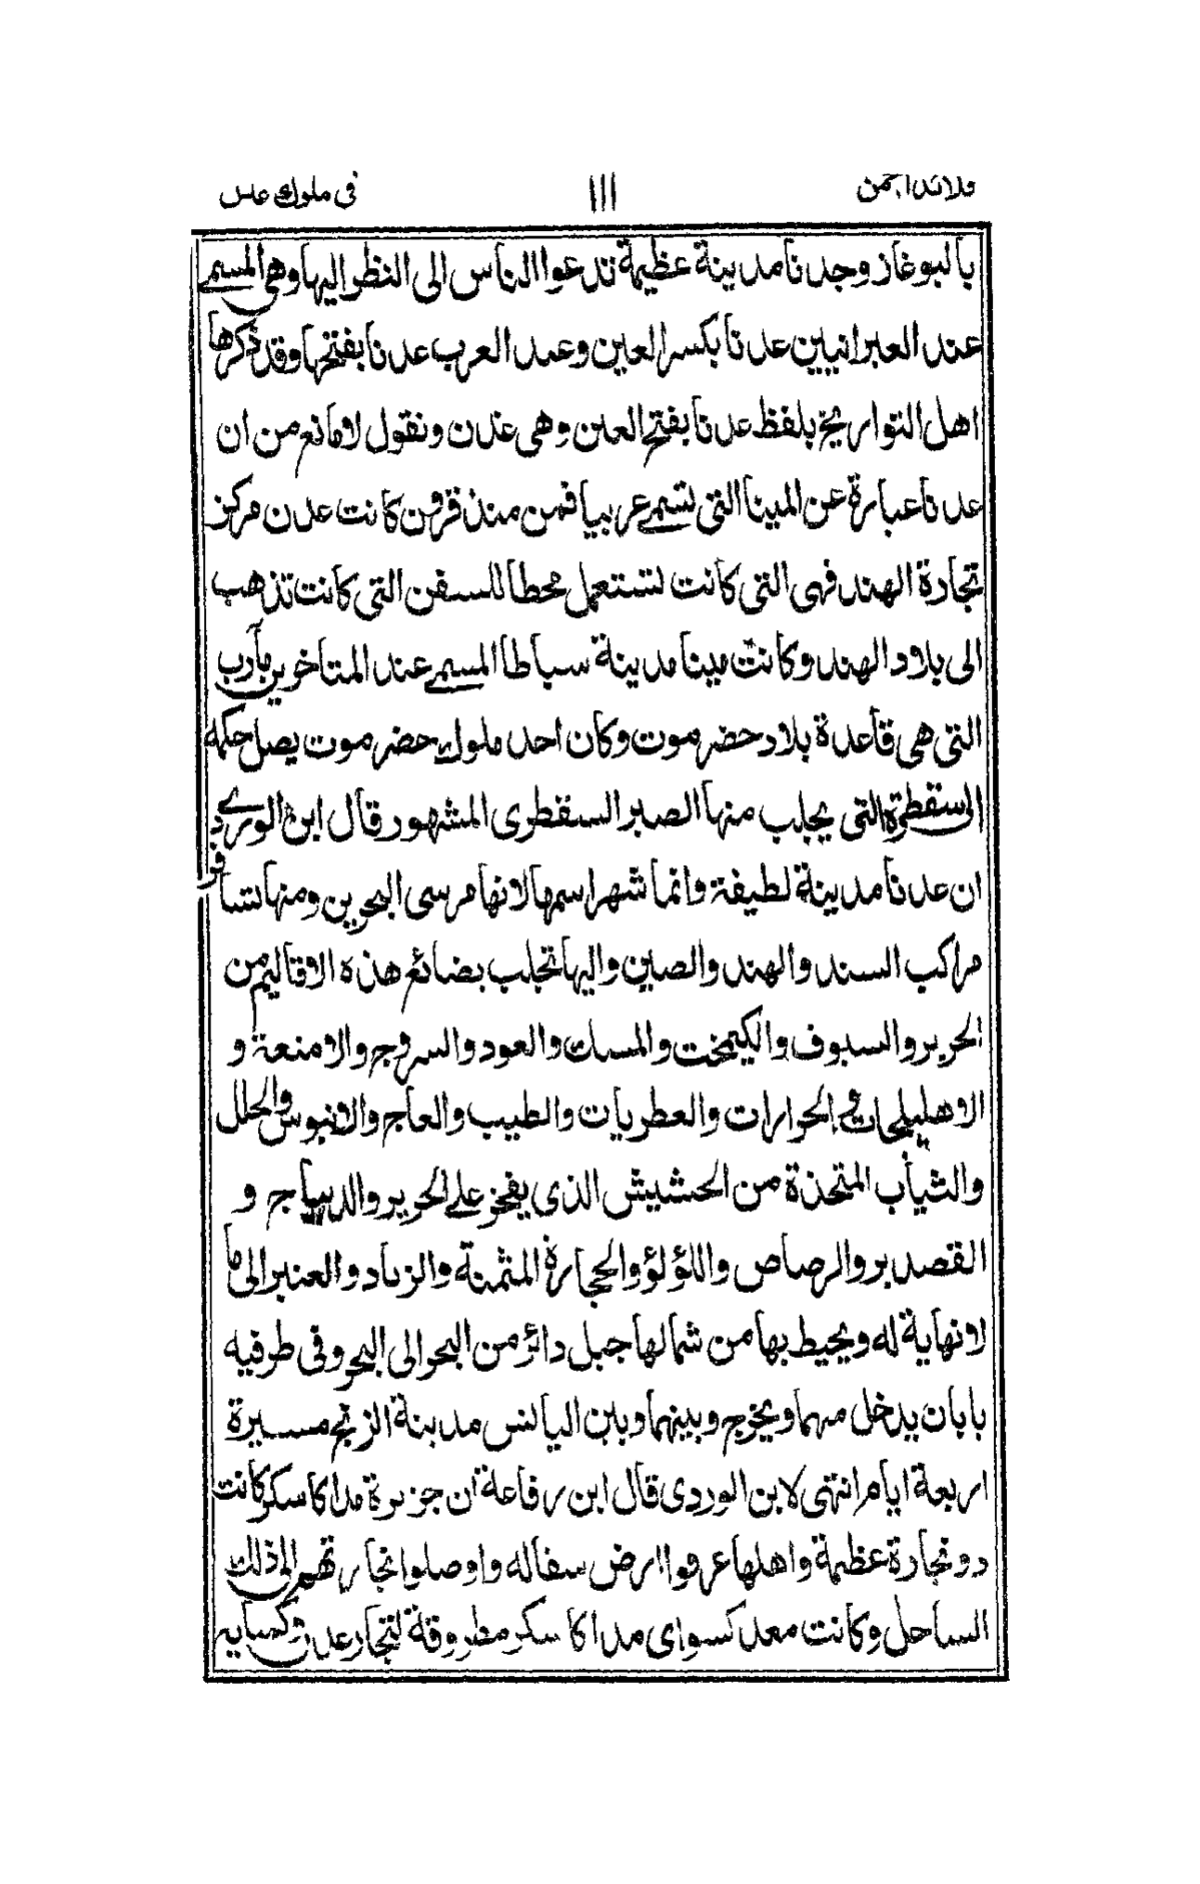 قلائد الجمن ١١١ فى ملوك عدن
بالبوغاز وجدنا مدينة عظيمة تدعوا الناس الى النظر اليها وهى المسمى
عند العبرانيين عدنا بكسر العين وعند العرب عدنا بفتحها وقد ذكرها
اهل التواريخ بلفظ عدنا بفتح العين وهى عدن ونقول لا مانع من ان
عدنا عبارة عن المينا التى تسمى عربيا فمن منذ قرون كانت عدن مركز
تجارة الهند فهى التى كانت تستعمل محطا للسفن التى كانت تذهب
الى بلاد الهند وكانت مينا مدينة سباطا المسمى عند المتاخرين بمأرب
التى هى قاعدة بلاد حضرموت وكان احد ملوك حضرموت يصل حكمه
الى سقطرة التى يجلب منها الصبر السقطرى المشهور قال ابن الوردى
ان عدنا مدينة لطيفة وانما شهر اسمها لانها مرسى البحرين ومنها تسافر
مراكب السند والهند والصين واليها تجلب بضائع هذه الاقاليم من
الحرير والسيوف والكيمخت والمسك والعود والسروج والامتعة و
الاهليلجات والحرارات والعطريات والطيب والعاج والابنوس والحلل
والثياب المتخذة من الحشيش الذى يفخر على الحرير والديباج و
القصدير والرصاص واللؤلؤ والحجارة المثمنة والزباد والعنبر الى ما
لا نهاية له ويحيط بها من شمالها جبل دائر من البحر الى البحر وفى طرفيه
بابان يدخل منهما ويخرج وبينهما وبين اليابس مدينة الزنج مسيرة
اربعة ايام انتهى لابن الوردى قال ابن رفاعة ان جزيرة مداكاسكر كانت
ذو تجارة عظيمة واهلها عرفوا ارض سفاله واوصلوا تجارتهم الى ذلك
الساحل وكانت معدكسواى مداكاسكر مطروقة لتجار عدن